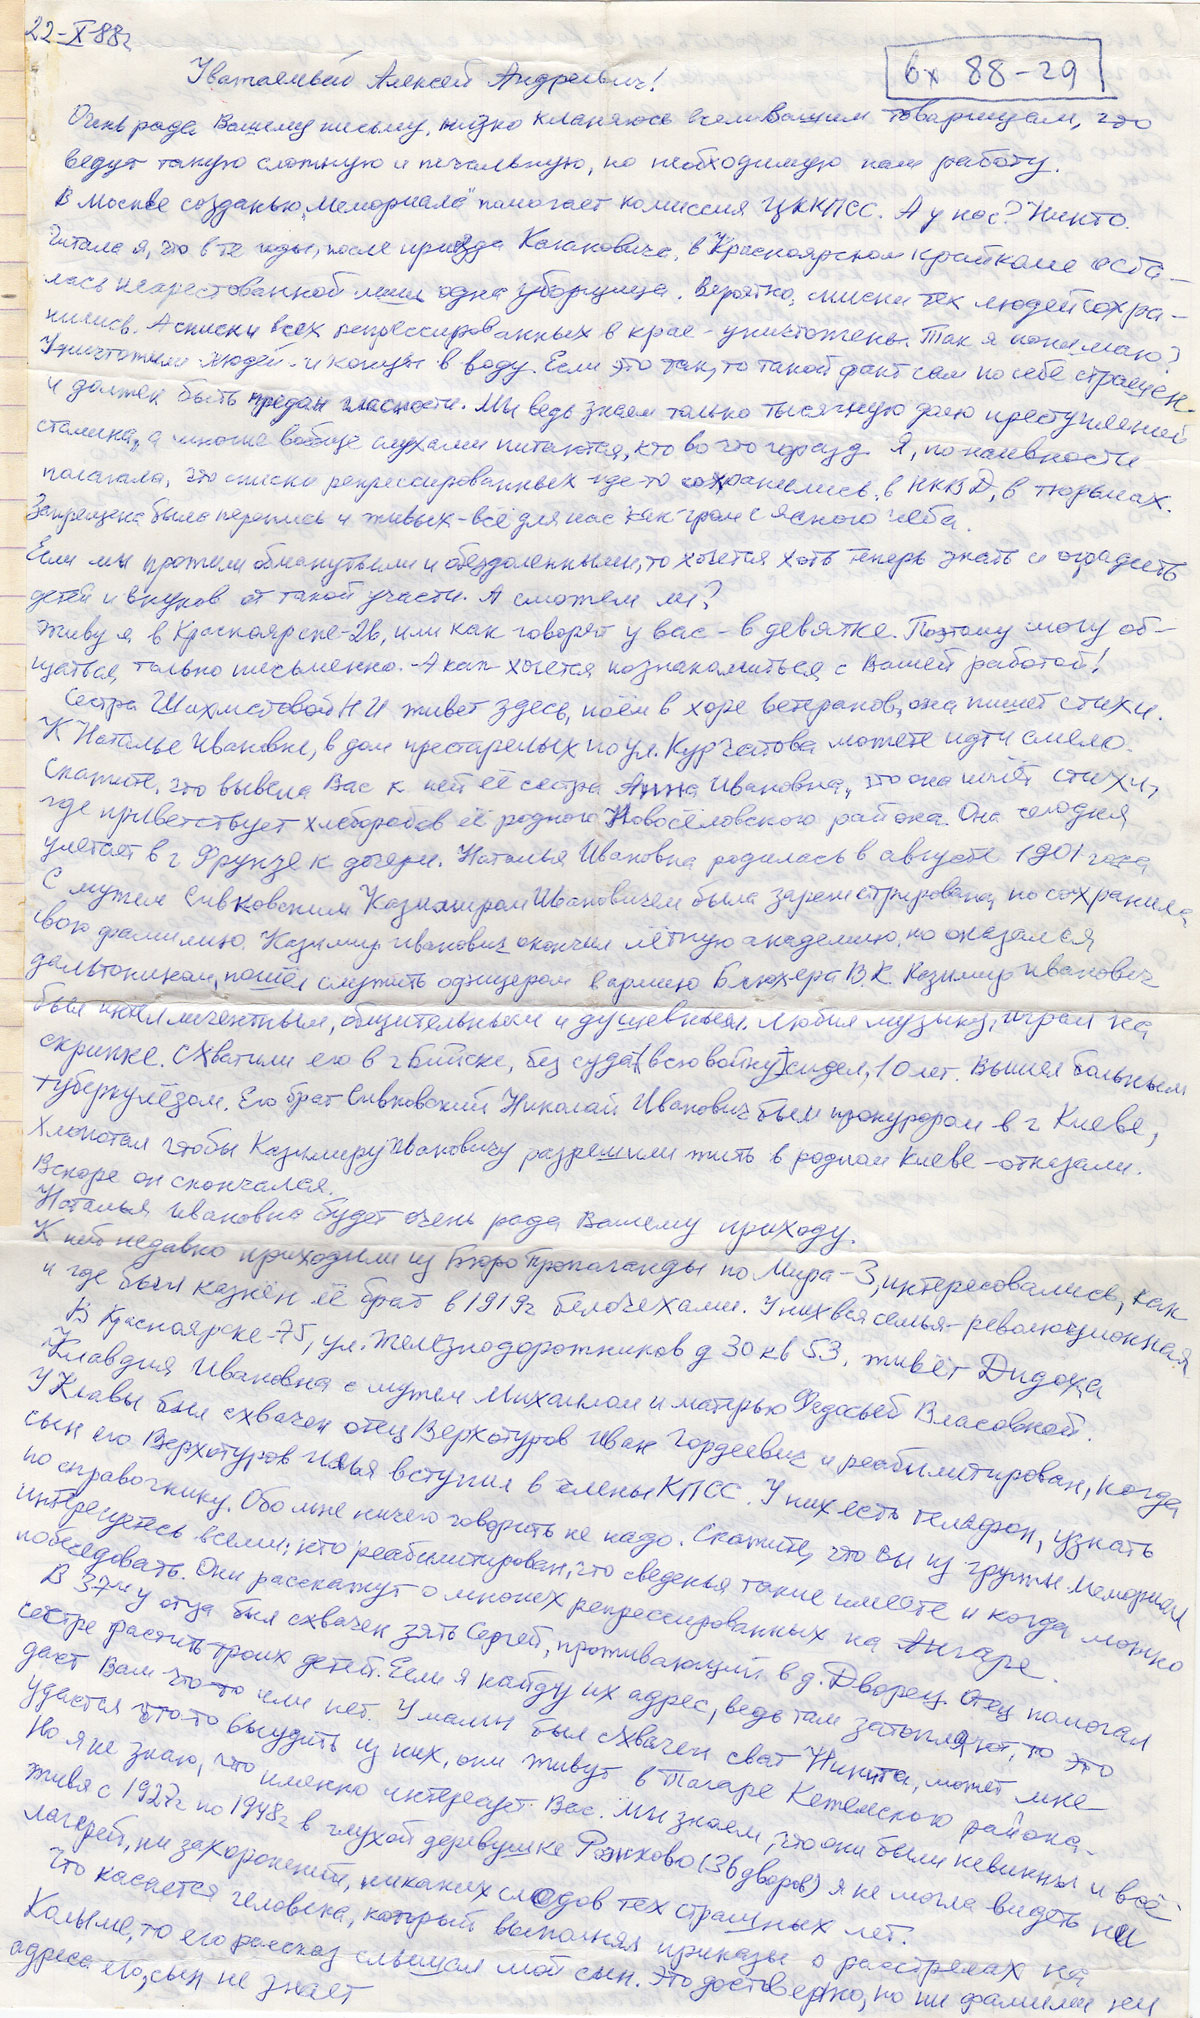 22-X-88г
вх 88-29
Уважаемый Алексей Андреевич!
Очень рада Вашему письму, низко кланяюсь всем Вашим товарищам, что
ведут такую сложную и печальную, но необходимую нам работу.
В Москве созданью „Мемориала" помогает комиссия ЦККПСС. А у нас? Никто.
Читала я, что в те годы, после приезда Кагановича, в Красноярском крайкоме оста-
лась неарестованной лишь одна уборщица. Вероятно, списки тех людей сохра-
нились. А списки всех репрессированных в крае - уничтожены. Так я понимаю?
Уничтожили людей - и концы в воду. Если это так, то такой факт сам по себе страшен
и должен быть предан гласности. Мы ведь знаем только тысячную долю преступлений
сталина, а многие вообще слухами питаются, кто во что горазд. Я, по наивности
полагала, что списки репрессированных где-то сохранились, в НКВД, в тюрьмах.
Запрещена была перепись и живых - всё для нас как гром с ясного неба.
Если мы прожили обманутыми и обездоленными, то хочется хоть теперь знать и оградить
детей и внуков от такой участи. А сможем ли?
Живу я в Красноярске-26, или как говорят у вас - в девятке. Поэтому могу об-
щаться только письменно. - А как хочется познакомиться с Вашей работой!
Сестра Шахматовой Н И живет здесь, поём в хоре ветеранов, она пишет стихи.
К Наталье Ивановне, в дом престарелых по ул. Курчатова можете идти смело.
Скажите, что вывела Вас к ней её сестра Анна Ивановна, что она шлёт стихи,
где приветствует хлеборобов её родного Новосёловского района. Она сегодня
улетает в г Фрунзе к дочери. Наталья Ивановна родилась в августе 1901 года
С мужем Сивковским Казимиром Ивановичем была зарегистрирована, но сохранила
свою фамилию. Казимир Иванович окончил лётную академию, но оказался
дальтоником, пошёл служить офицером в армию Блюхера В.К. Казимир Иванович
был интеллигентным, общительным и душевным. Любил музыку, играл на
скрипке. Схватили его в г Бийске, без суда (всю войну) сидел, 10 лет. Вышел больным
туберкулёзом. Его брат Сивковский Николай Иванович был прокурором в г Киеве,
хлопотал чтобы Казимиру Ивановичу разрешили жить в родном Киеве - отказали.
Вскоре он скончался.
Наталья Ивановна будет очень рада Вашему приходу.
К ней недавно приходили из Бюро Пропаганды по Мира-3, интересовались, как
и где был казнён её брат в 1919г белочехами. У них вся семья - революционная
В Красноярске-75, ул. Железнодорожников д 30 кв 53, живёт Дидоха
Клавдия Ивановна с мужем Михаилом и матерью Федосьей Власовной.
У Клавы был схвачен отец Верхотуров Иван Гордеевич и реабилитирован, когда
сын его Верхотуров Илья вступил в члены КПСС. У них есть телефон, узнать
по справочнику. Обо мне ничего говорить не надо. Скажите, что Вы из группы Мемориал
интересуетесь всеми, кто реабилитирован, что сведенья такие имеете и когда можно
побеседовать. Они расскажут о многих репрессированных на Ангаре.
В 37м у отца был схвачен зять Сергей, проживающий в д. Дворец. Отец помогал
сестре растить троих детей. Если я найду их адрес, ведь там затопляют, то это
даст Вам что то или нет. У мамы был схвачен сват Никита, может мне
удастся что то выудить из них, они живут в Тагаре Кежемского района.
Но я не знаю, что именно интересует Вас. Мы знаем, что они были невинны и всё.
Живя с 1927г по 1948г в глухой деревушке Рожково (36 дворов) я не могла видеть ни
лагерей, ни захоронений, никаких следов тех страшных лет.
Что касается человека, который выполнял приказы о расстрелах на
Колыме, то его рассказ слышал мой сын. Это достоверно, но ни фамилии ни
адреса его, сын не знает